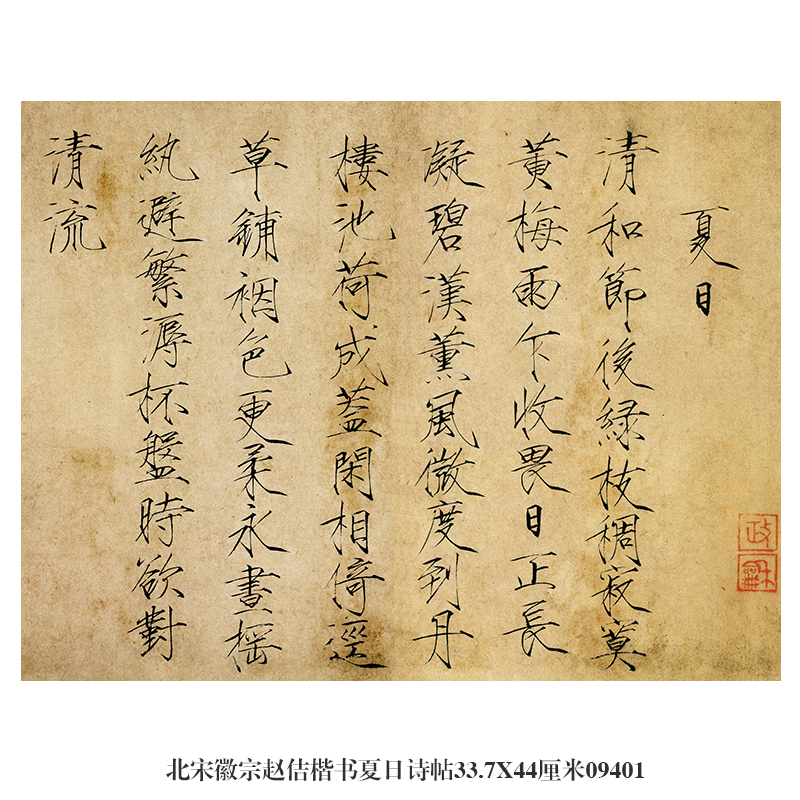 夏日
清和節後緑枝稠寂莫
黄梅雨乍收畏日正長
凝碧漢薰風微度到丹
樓池荷成蓋閑相倚逕
草鋪裀色更柔永晝揺
紈避繁溽杯盤時欲對
清流
政
龢
北宋徽宗赵佶楷书夏日诗帖33.7X44厘米09401